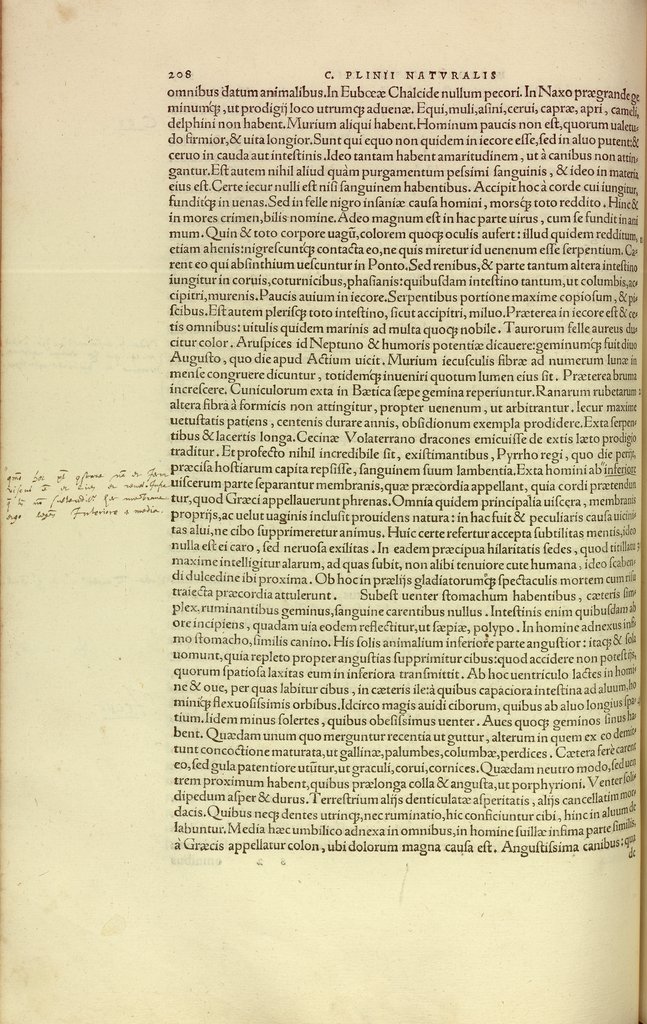 208 C. PLINII NATVRALIS
omnibus datum animalibus. In Eubœæ Chalcide nullum pecori. In Naxo prægrande ge
minumq́;, ut prodigij loco utrumq; aduenæ. Equi, muli, asini, cerui, capræ, apri, cameli,
delphini non habent. Murium aliqui habent. Hominum paucis non est, quorum ualetu
do firmior, & uita longior. Sunt qui equo non quidem in iecore esse, sed in aluo putent: &
ceruo in cauda aut intestinis. Ideo tantam habent amaritudinem, ut à canibus non attin
gantur. Est autem nihil aliud quàm purgamentum pessimi sanguinis, & ideo in materia
eius est. Certe iecur nulli est nisi sanguinem habentibus. Accipit hoc à corde cui iungitur,
funditq́; in uenas. Sed in felle nigro insaniæ causa homini, morsq́; toto reddito. Hinc &
in mores crimen, bilis nomine. Adeo magnum est in hac parte uirus, cum se fundit in ani
mum. Quin & toto corpore uagū, colorem quoq; oculis aufert: illud quidem redditum,
etiam ahenis: nigrescuntq́; contacta eo, ne quis miretur id uenenum esse serpentium. Ca
rent eo qui absinthium uescuntur in Ponto. Sed renibus, & parte tantum altera intestino
iungitur in coruis, coturnicibus, phasianis: quibusdam intestino tantum, ut columbis, ac
cipitri, murenis. Paucis auium in iecore. Serpentibus portione maxime copiosum, & pi
scibus. Est autem plerisq; toto intestino, sicut accipitri, miluo. Præterea in iecore est & ce
tis omnibus: uitulis quidem marinis ad multa quoq; nobile. Taurorum felle aureus du
citur color. Aruspices id Neptuno & humoris potentiæ dicauere: geminumq́; fuit diuo
Augusto, quo die apud Actium uicit. Murium iecusculis fibræ ad numerum lunæ in
mense congruere dicuntur, totidemq́; inueniri quotum lumen eius sit. Præterea bruma
increscere. Cuniculorum exta in Bætica sæpe gemina reperiuntur. Ranarum rubetarum
altera fibra à formicis non attingitur, propter uenenum, ut arbitrantur. Iecur maxime
uetustatis patiens, centenis durare annis, obsidionum exempla prodidere. Exta serpen
tibus & lacertis longa. Cecinæ Volaterrano dracones emicuisse de extis læto prodigio
traditur. Et profecto nihil incredibile sit, existimantibus, Pyrrho regi, quo die perijt,
præcisa hostiarum capita repsisse, sanguinem suum lambentia. Exta homini ab inferiore
uiscerum parte separantur membranis, quæ præcordia appellant, quia cordi prætendun
tur, quod Græci appellauerunt phrenas. Omnia quidem principalia uiscera, membranis
proprijs, ac uelut uaginis inclusit prouidens natura: in hac fuit & peculiaris causa uicini
tas alui, ne cibo supprimeretur animus. Huic certe refertur accepta subtilitas mentis, ideo
nulla est ei caro, sed neruosa exilitas. In eadem præcipua hilaritatis sedes, quod titillatu
maxime intelligitur alarum, ad quas subit, non alibi tenuiore cute humana, ideo scaben
di dulcedine ibi proxima. Ob hoc in prælijs gladiatorumq́; spectaculis mortem cum risu
traiecta præcordia attulerunt. Subest uenter stomachum habentibus, cæteris sim
plex, ruminantibus geminus, sanguine carentibus nullus. Intestinis enim quibusdam ab
ore incipiens, quadam uia eodem reflectitur, ut sæpiæ, polypo. In homine adnexus infi
mo stomacho, similis canino. His solis animalium inferiore parte angustior: itaq; & sola
uomunt, quia repleto propter angustias supprimitur cibus: quod accidere non potest ijs,
quorum spatiosa laxitas eum in inferiora transmittit. Ab hoc uentriculo lactes in homi
ne & oue, per quas labitur cibus, in cæteris ile: à quibus capaciora intestina ad aluum, ho
miniq́; flexuosissimis orbibus. Idcirco magis auidi ciborum, quibus ab aluo longius spa
tium. Iidem minus solertes, quibus obesissimus uenter. Aues quoq; geminos sinus ha
bent. Quædam unum quo merguntur recentia ut guttur, alterum in quem ex eo demit
tunt concoctione maturata, ut gallinæ, palumbes, columbæ, perdices. Cætera ferè carent
eo, sed gula patentiore utūtur, ut graculi, corui, cornices. Quædam neutro modo, sed uen
trem proximum habent, quibus prælonga colla & angusta, ut porphyrioni. Venter soli
dipedum asper & durus. Terrestrium alijs denticulatæ asperitatis, alijs cancellatim mor
dacis. Quibus neq; dentes utrinq;, nec ruminatio, hic conficiuntur cibi, hinc in aluum de
labuntur. Media hæc umbilico adnexa in omnibus, in homine suillæ infima parte similis,
à Græcis appellatur colon, ubi dolorum magna causa est. Angustissima canibus: qua
de